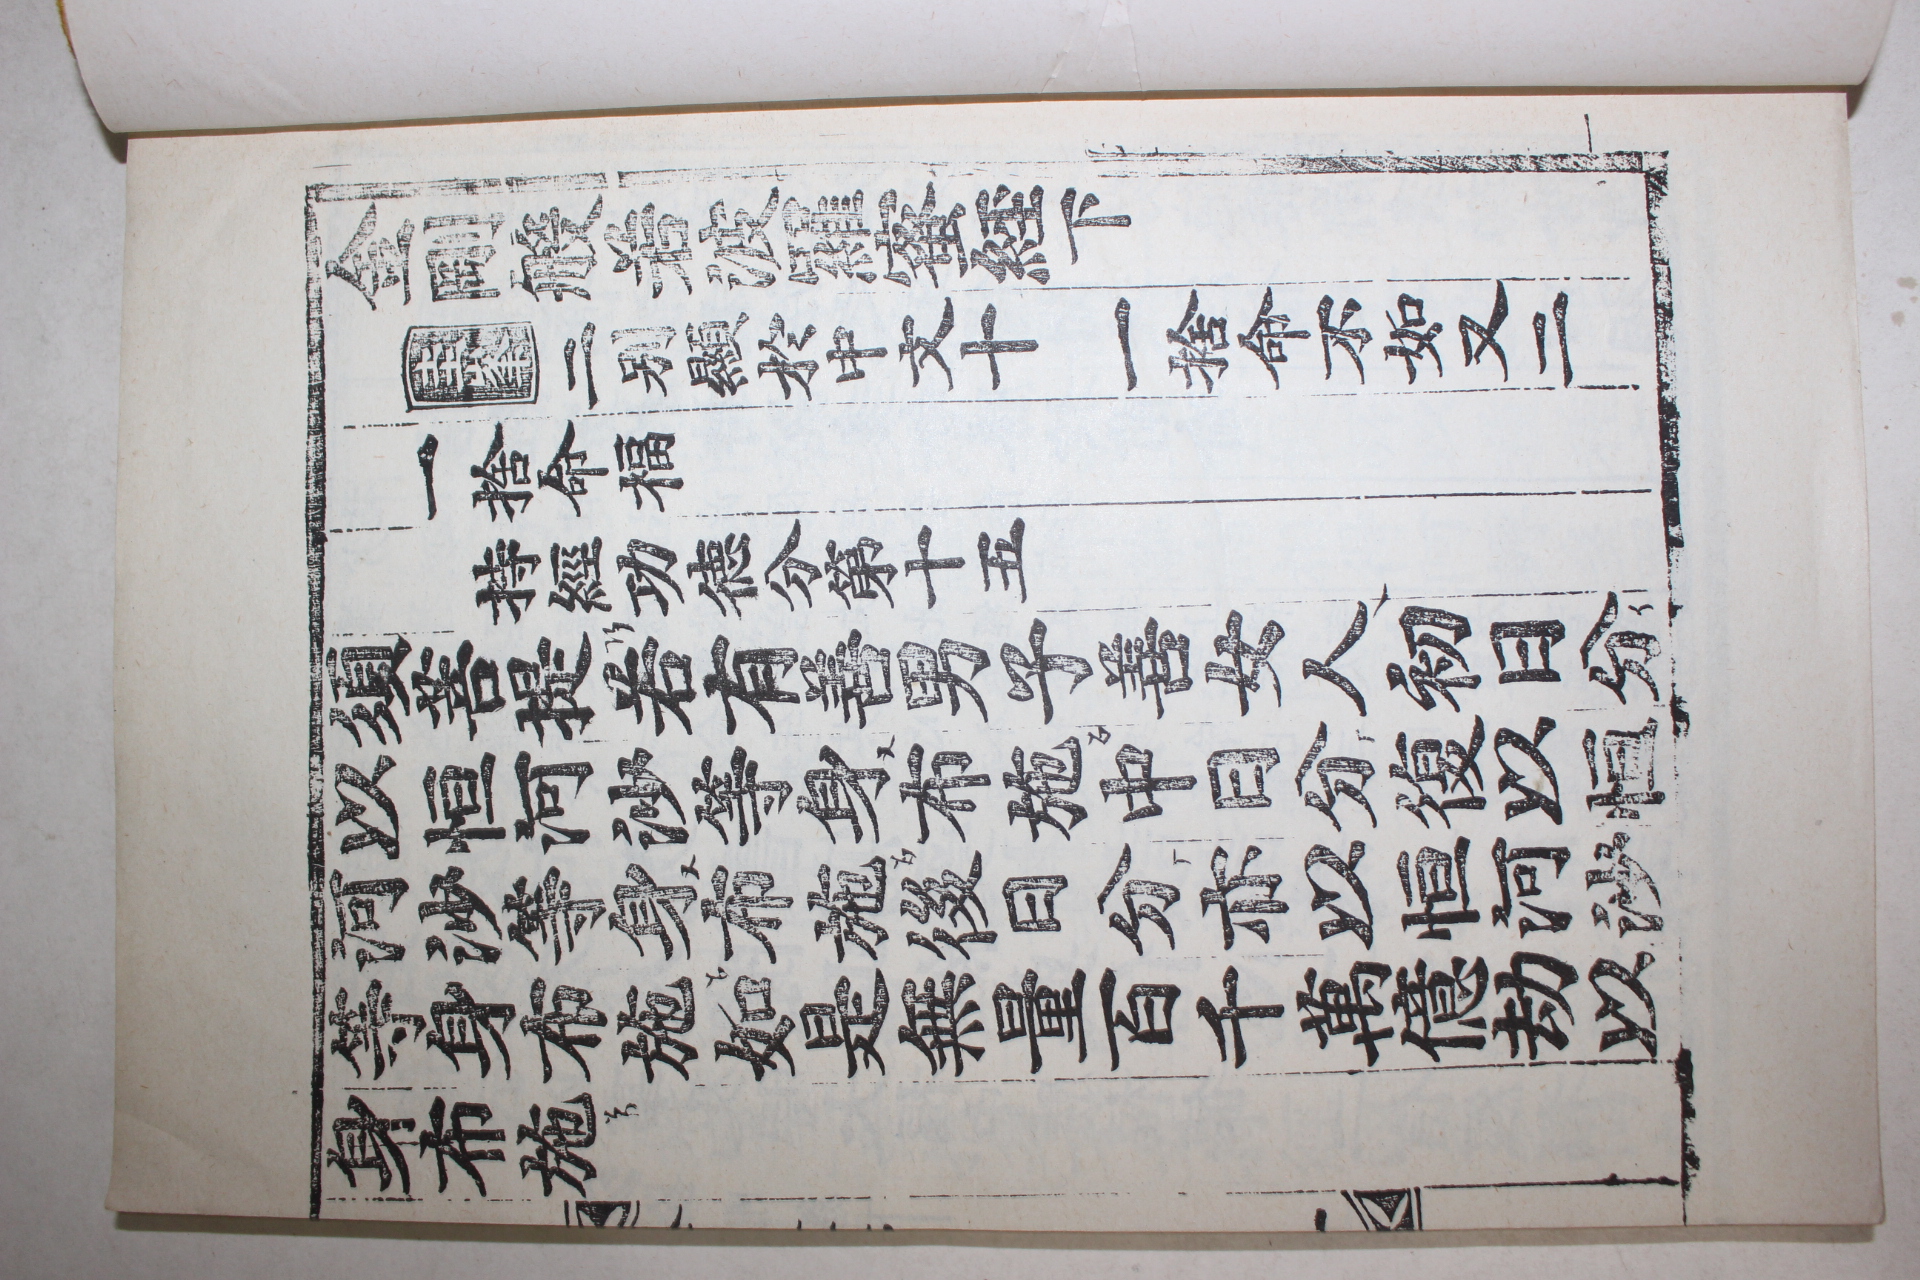 金剛般若波羅蜜經下
圭峯 二別顯於中文十 一捨命不如又二
一捨命福
持經功德分第十五
須菩提若有善男子善女人初日分
以恒河沙等身布施中日分復以恒
河沙等身布施後日分亦以恒河沙
等身布施如是無量百千萬億劫以
身布施